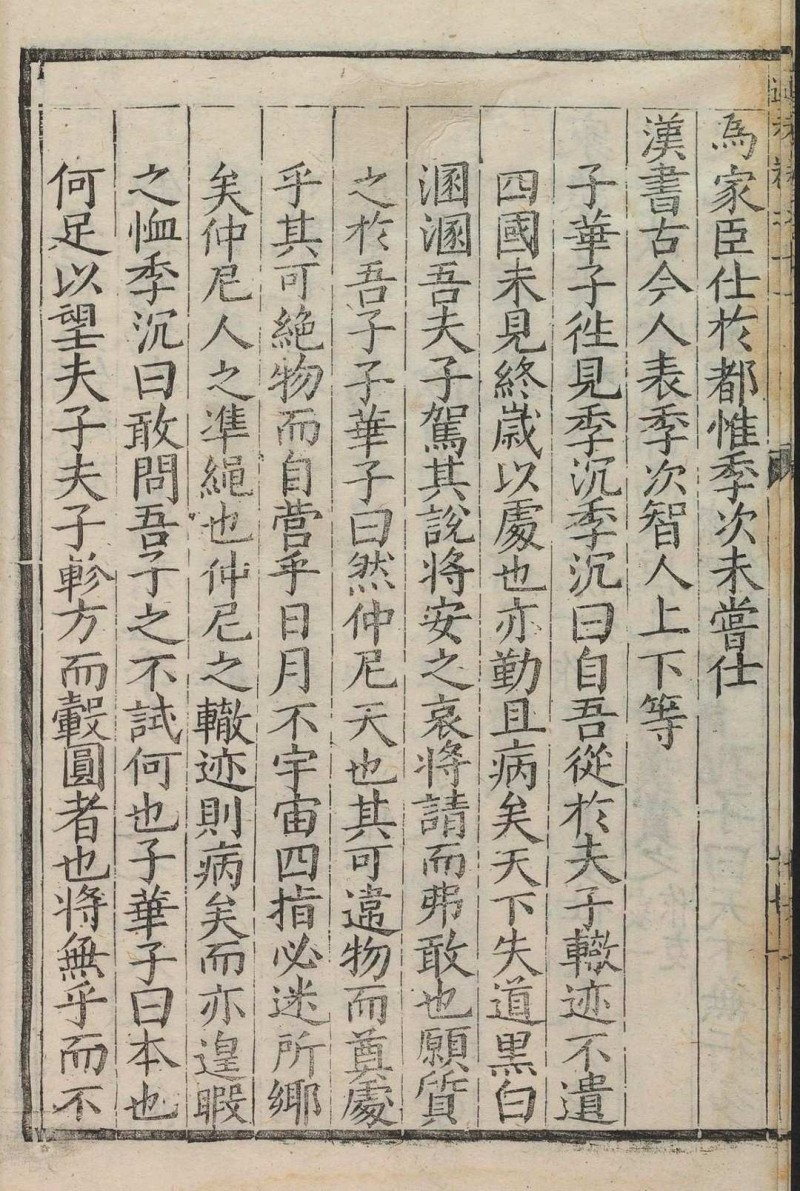 為家臣仕於都惟季次未嘗仕
漢書古今人表季次智人上下等
子華子徃見季沉季沉曰自吾從於夫子轍迹不遺
四國未見終歲以處也亦勤且病矣天下失道黑白
溷溷吾夫子駕其說將安之哀將請而弗敢也願質
之於吾子子華子曰然仲尼天也其可違物而奠處
乎其可絶物而自営乎日月不宇宙四指必迷所鄉
矣仲尼人之凖繩也仲尼之轍迹則病矣而亦遑暇
之恤季沉曰敢問吾子之不試何也子華子曰本也
何足以望夫子夫子軫方而轂圓者也將無乎而不